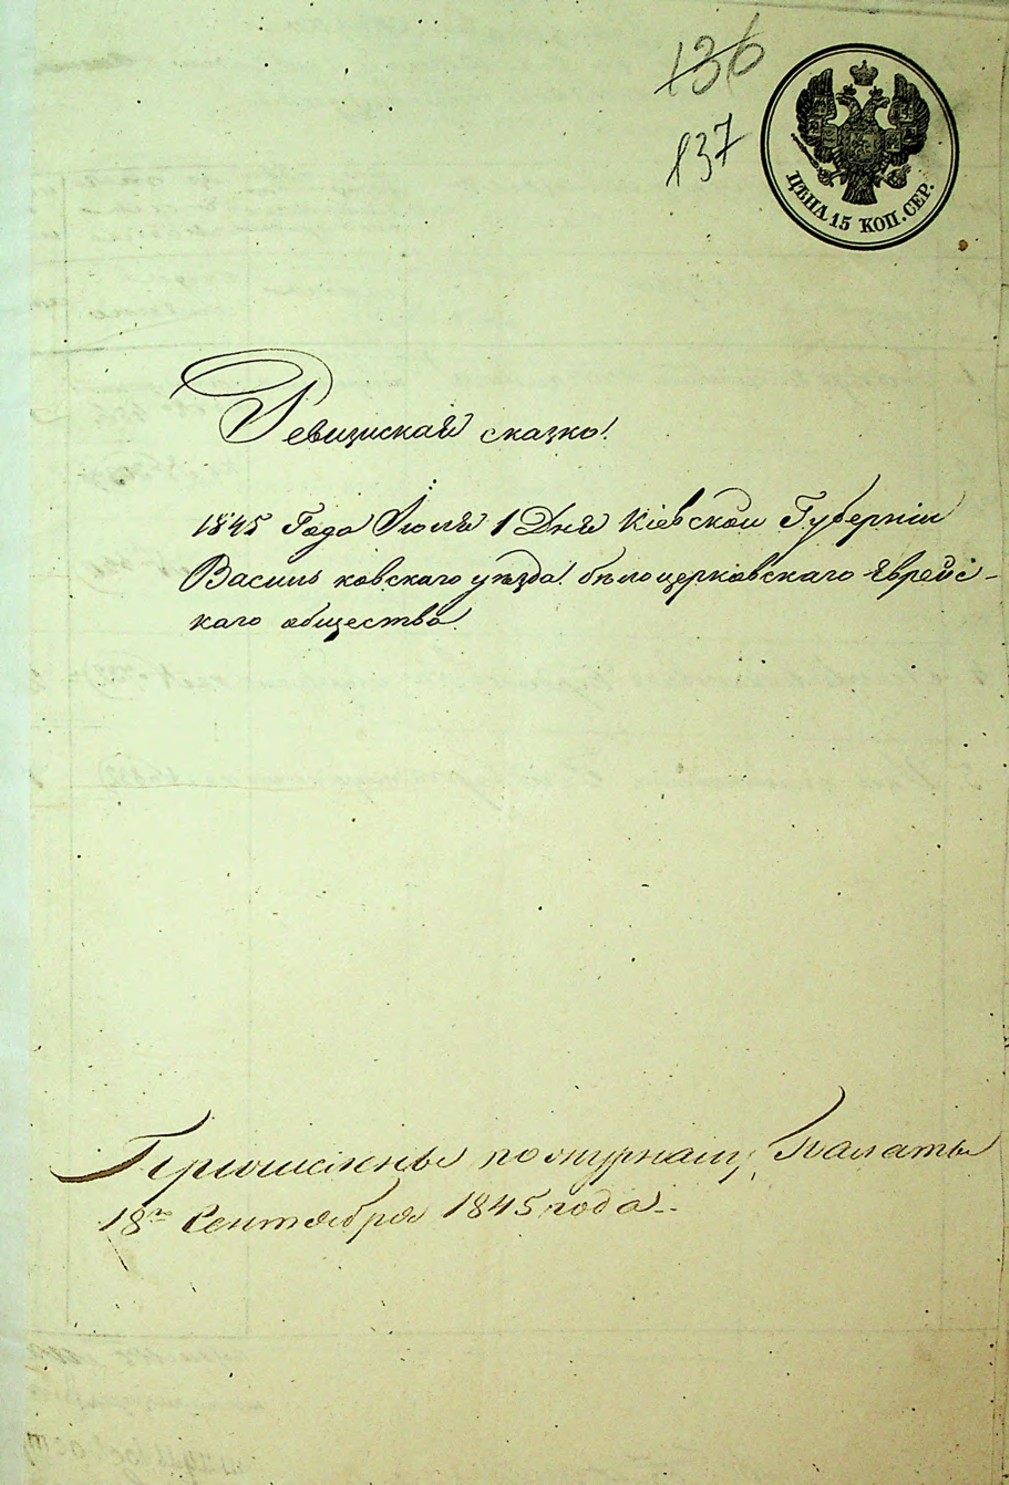 136
137
ЦѢНА 15 КОП. СЕР.
Ревизская сказка!
1845 Года Іюля 1 Дня Кіевской Губерніи
Василь ковскаго уѣзда бѣлоцерковскаго Еврейс-
каго общества
по журналу Палаты
18го Сентября 1845 года